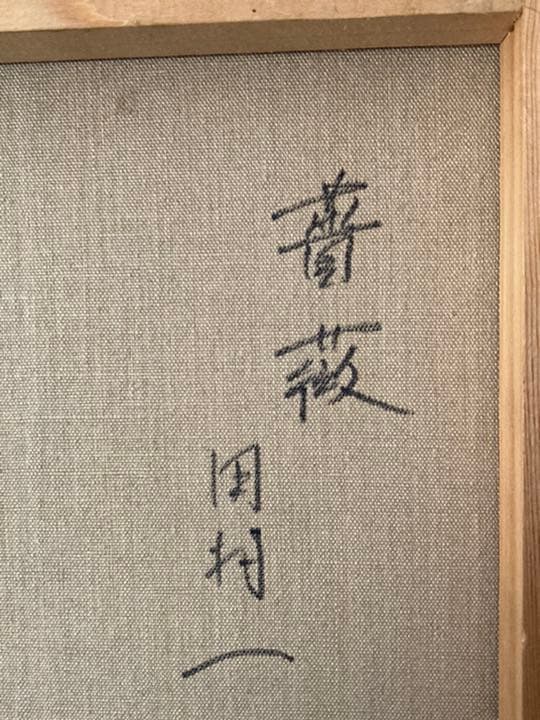 薔薇
田村一